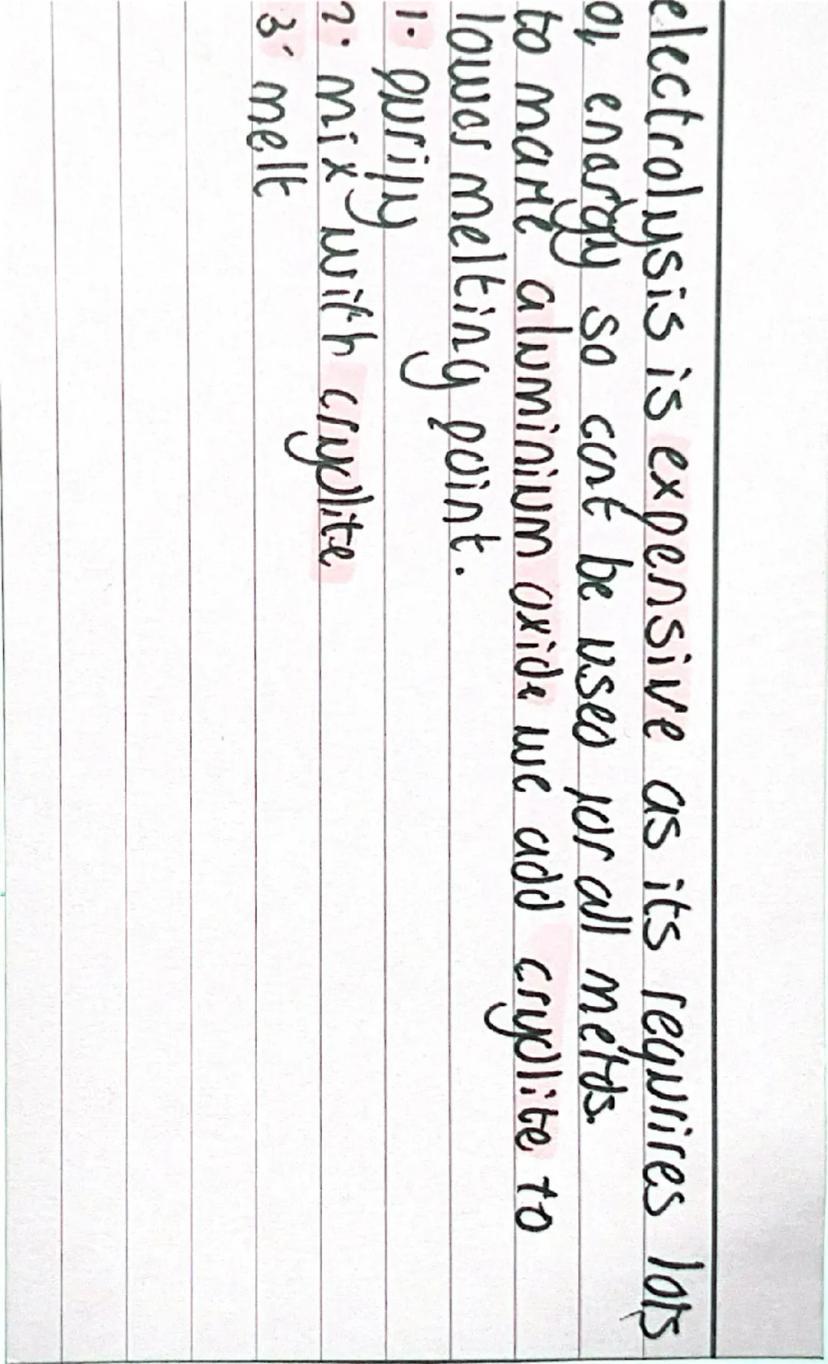 electrolysis is expensive as its requrires lots
of energy so cant be used for all metals.
to make aluminium oxide we add cryolite to
lower melting point.
1. purify
2. mix with cryolite
3. melt